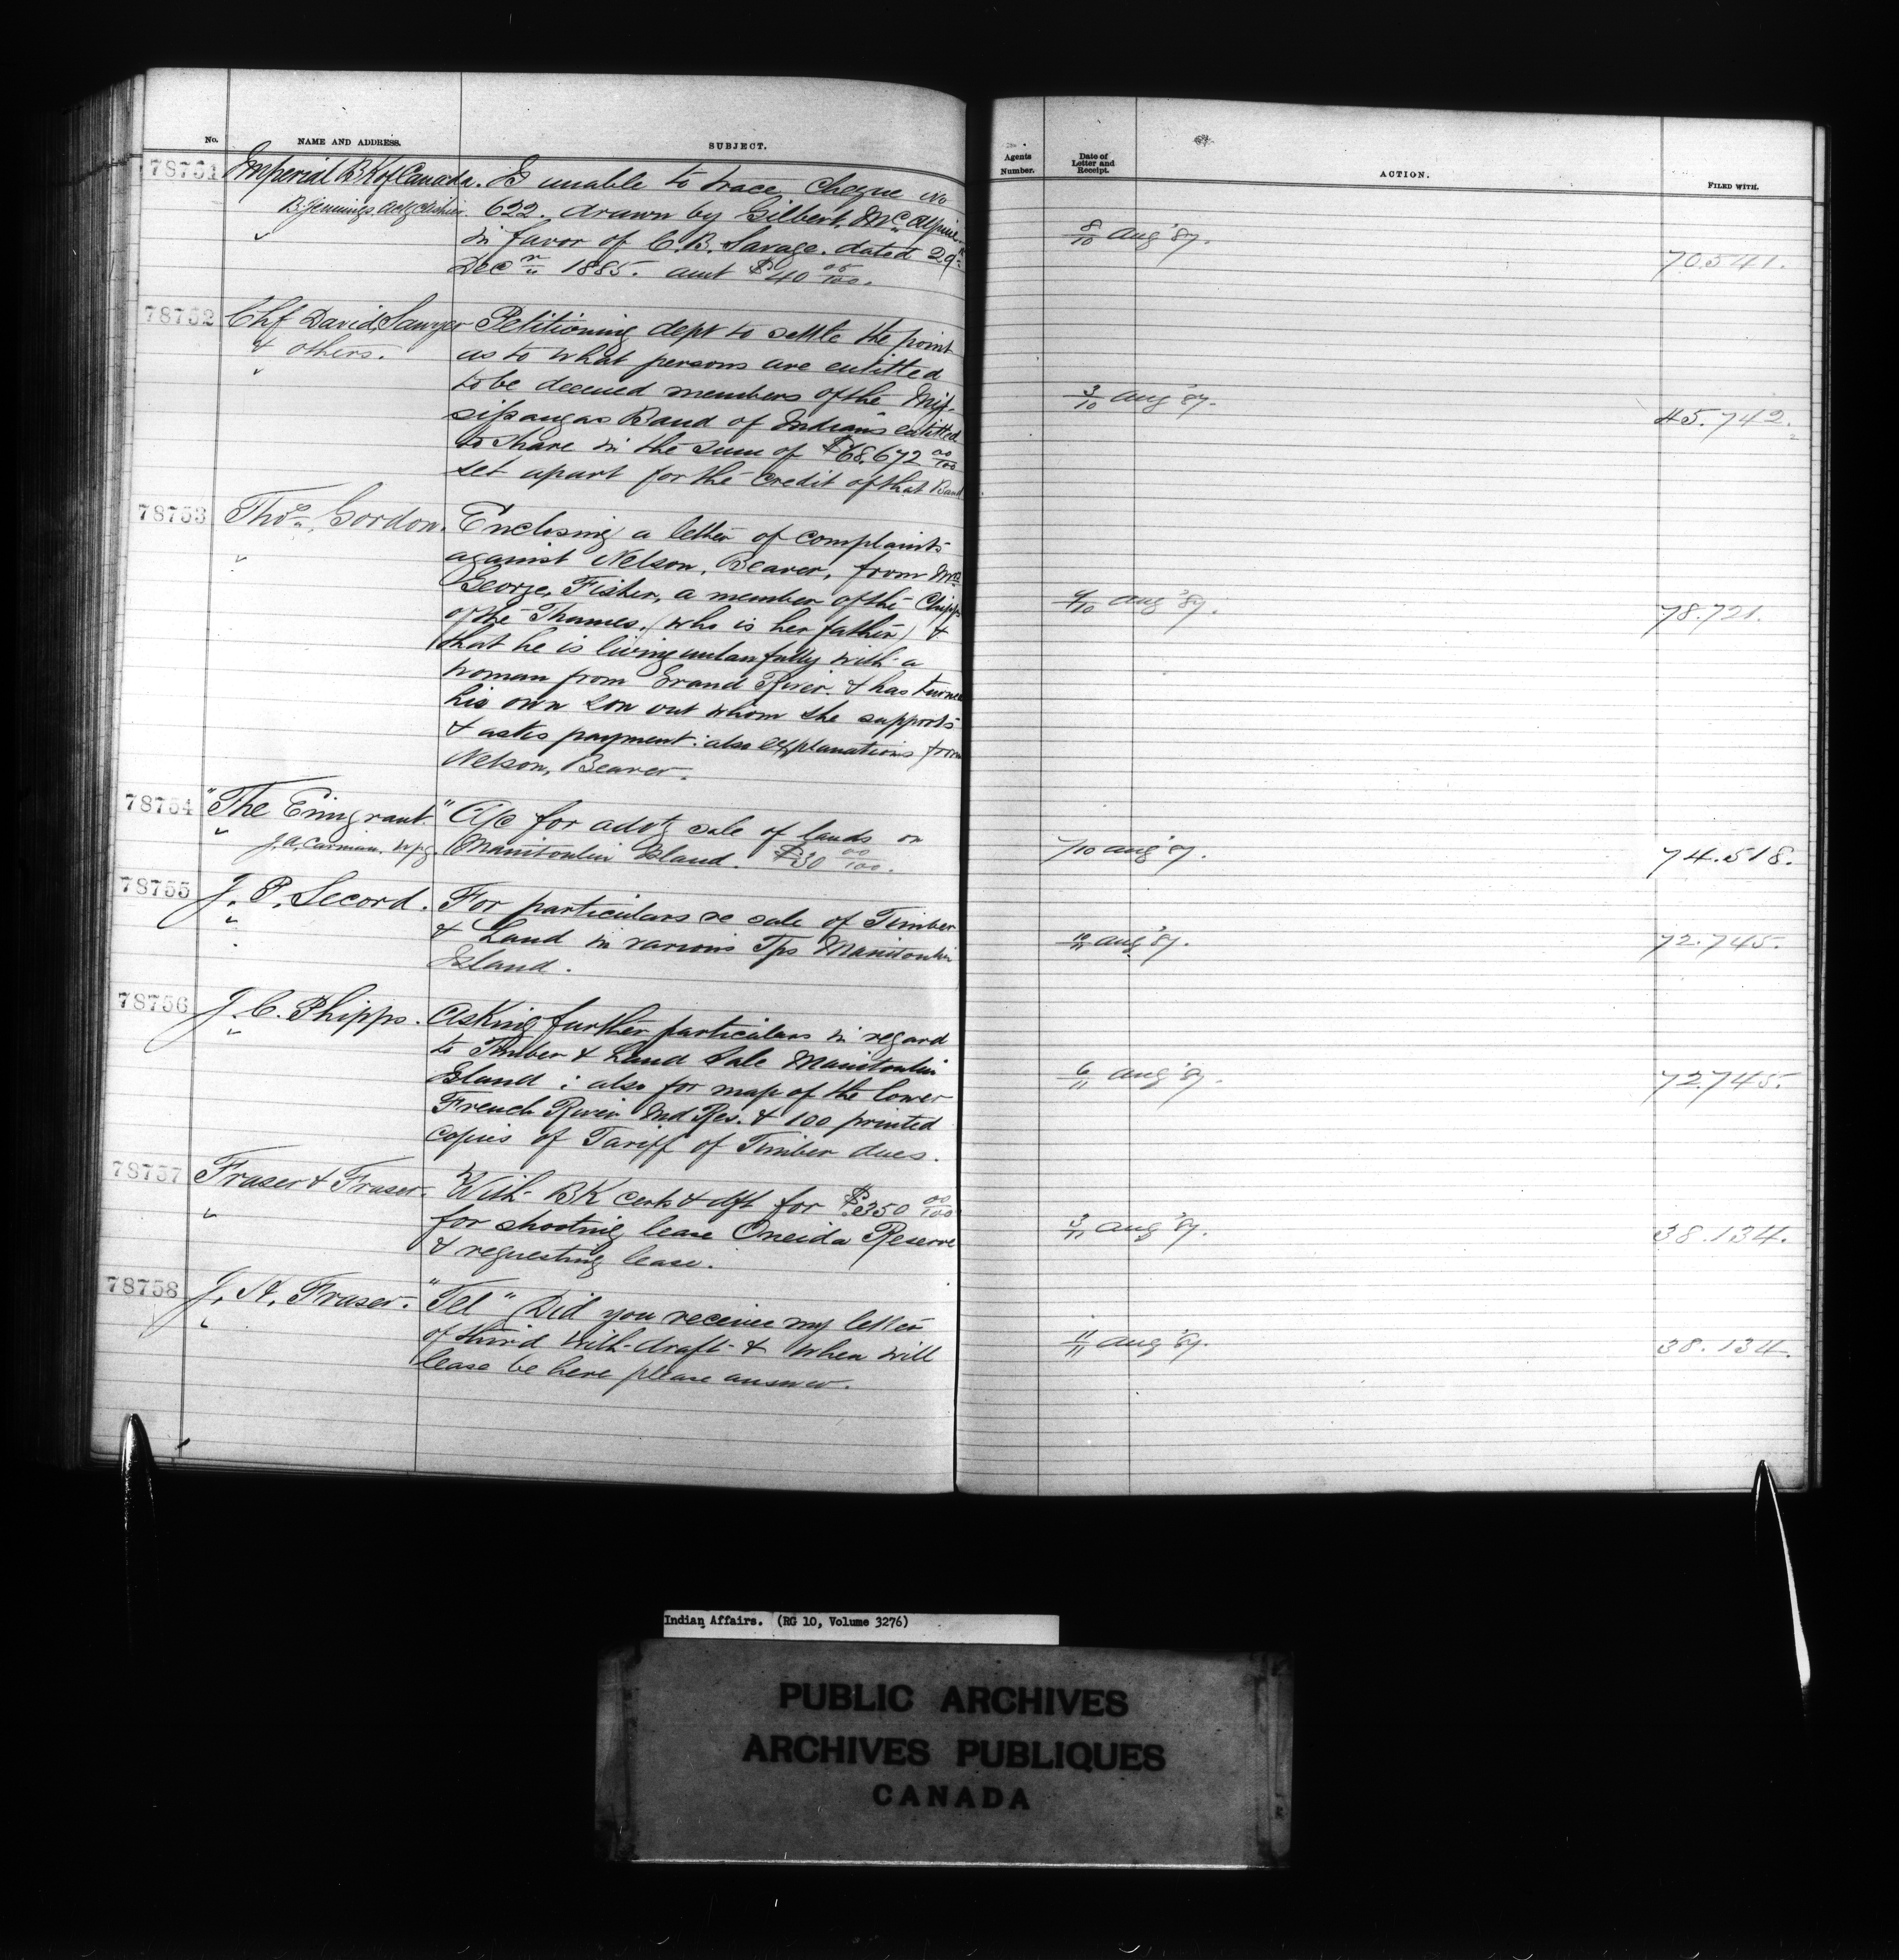 No. NAME AND ADDRESS. SUBJECT.
78751 Imperial BK of Canada. Is unable to trace cheque no
B. Jennings. actg Cashier. 622. drawn by Gilbert, McAlpine.
in favor of C. B. Savage. dated 29th
Decr 1885. amt $40 00/100.
78752 Chf David Sawyer Petitioning dept to settle the point
& others. as to what persons are entitled
to be deemed members of the Mis-
sissaugas Band of Indians entitled
to share in the sum of $68,672 00/100
set apart for the credit of that Band
78753 Thos. Gordon. Enclosing a letter of complaints
against Nelson, Beaver, from Mrs
George, Fisher, a member of the Chipps
of the Thames, (who is her father) &
that he is living unlawfully with a
woman from Grand River & has turned
his own son out whom she supports
& asks payment: also explanations from
Nelson, Beaver.
78754 "The Emigrant." A/c for advtg sale of lands on
J. A. Carman. Wpg. Manitoulin Island. $30 00/100.
78755 J. P. Secord. For particulars re sale of Timber
& Land in various Tps Manitoulin
Island.
78756 J. C. Phipps. Asking further particulars in regard
to Timber & Land Sale Manitoulin
Island: also for map of the lower
French River Ind Res. & 100 printed
copies of Tariff of Timber dues.
78757 Fraser & Fraser. With BK cert & dft for $350 00/100
for shooting lease Oneida Reserve
& requesting lease.
78758 J. A. Fraser. "Tel" Did you receive my letter
of third with draft & when will
lease be here please answer.
Agents Number. Date of Letter and Receipt. ACTION. FILED WITH.
8/10 Aug '87. 70.541.
3/10 Aug '87. 45.742.
9/10 Aug '87. 78.721.
7/10 Aug '87. 74.518.
10/11 Aug '87. 72.745.
6/11 Aug '87. 72.745.
3/11 Aug '87. 38.134.
11/11 Aug '87. 38.134.
Indian Affairs. (RG 10, Volume 3276)
PUBLIC ARCHIVES
ARCHIVES PUBLIQUES
CANADA